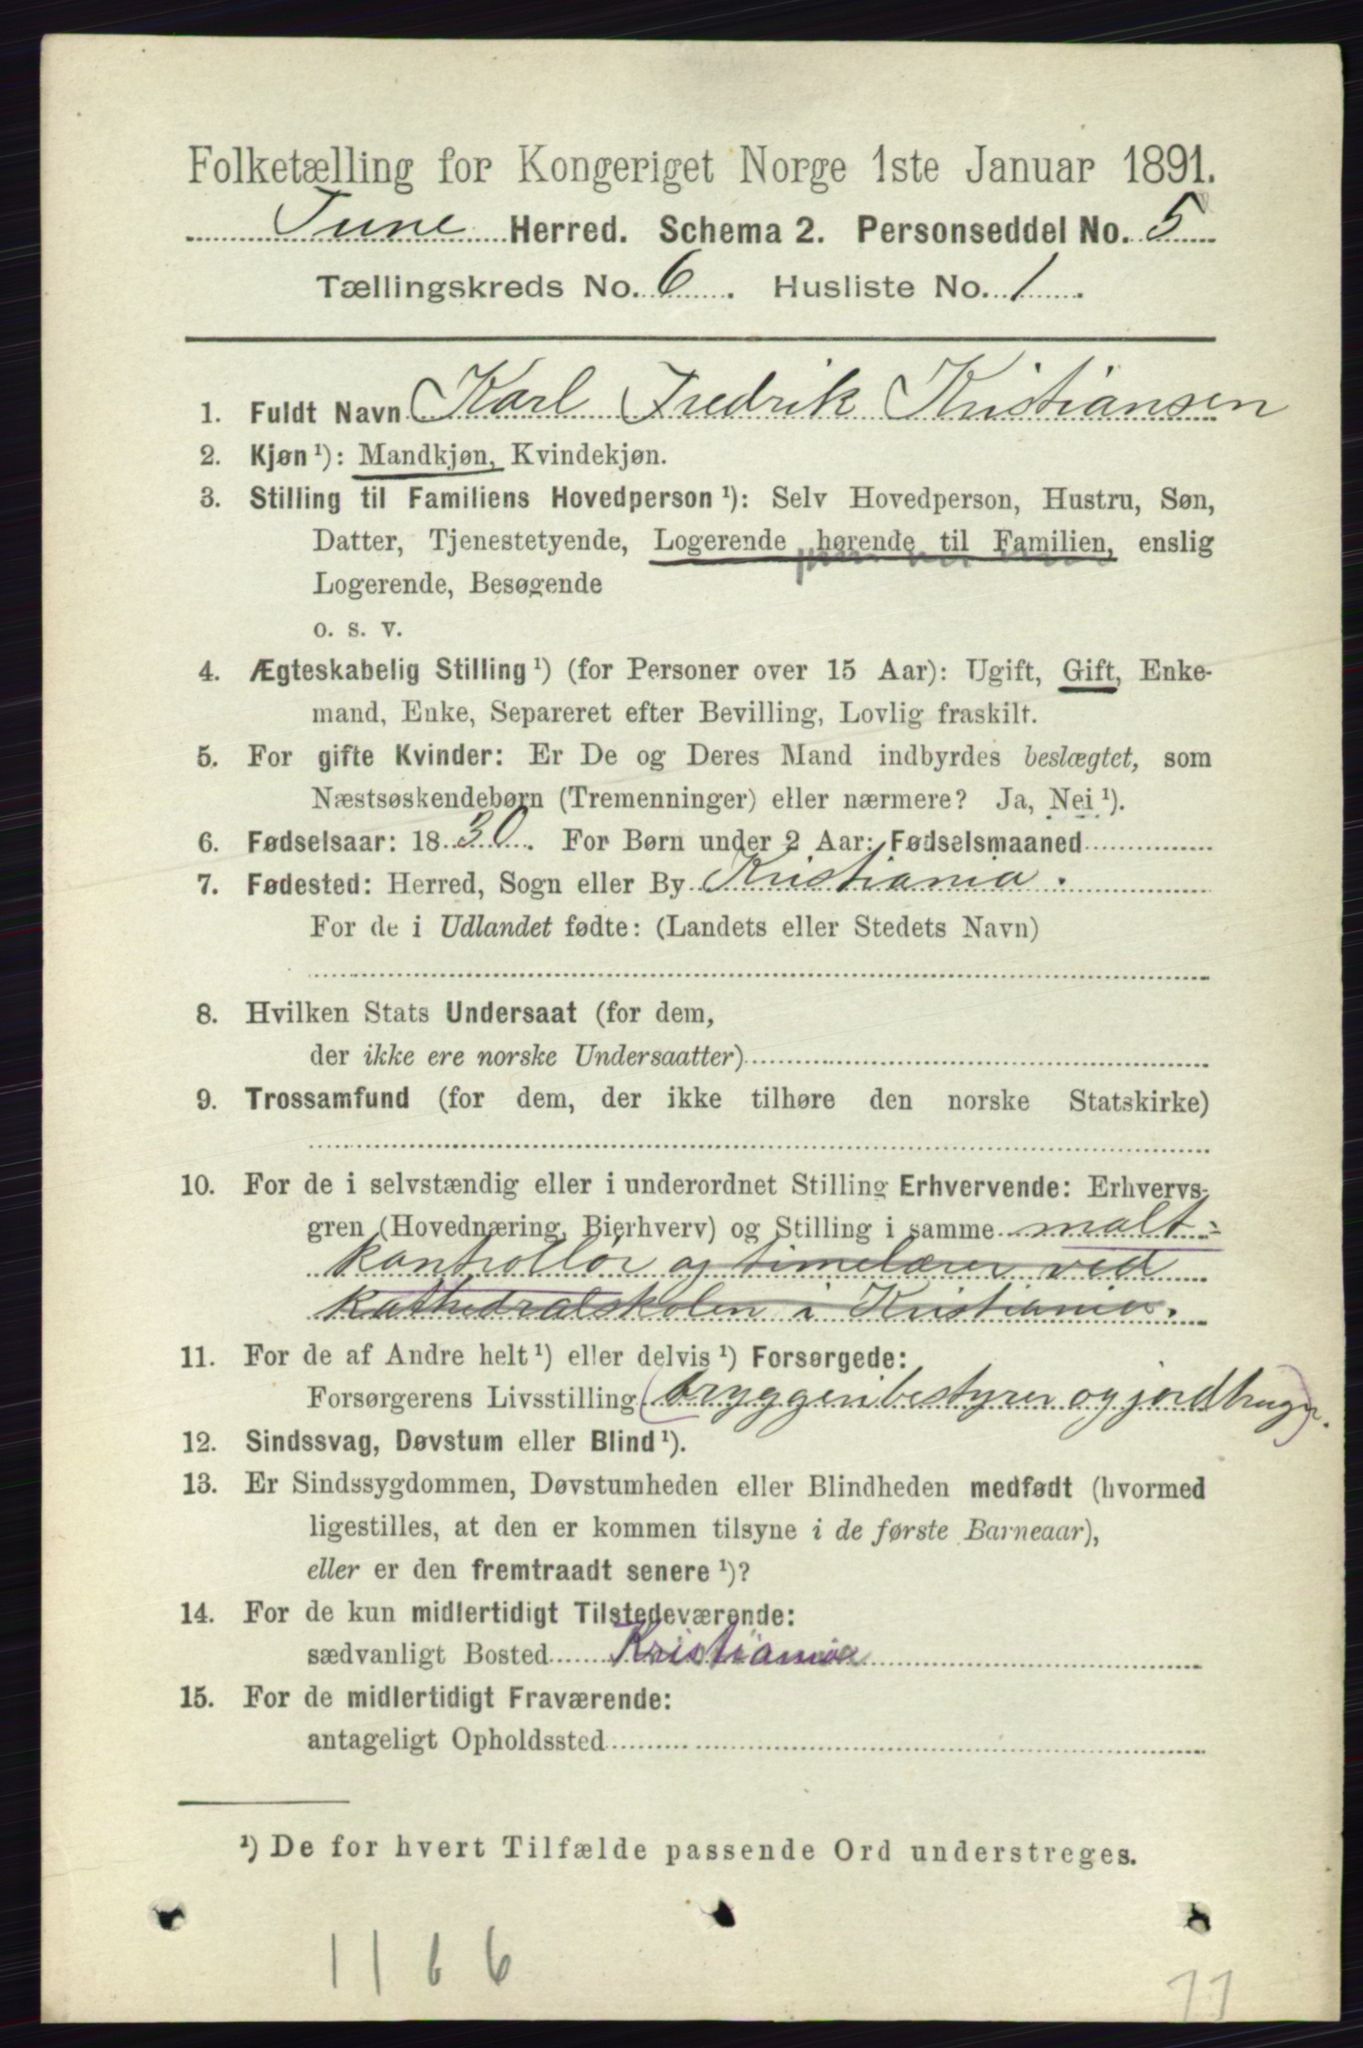 Folketælling for Kongeriget Norge 1ste Januar 1891.
Tune Herred. Schema 2. Personseddel No. 5
Tællingskreds No. 6. Husliste No. 1.
1. Fuldt Navn Karl Fredrik Kristiansen
2. Kjøn ¹): Mandkjøn, Kvindekjøn.
3. Stilling til Familiens Hovedperson ¹): Selv Hovedperson, Hustru, Søn,
Datter, Tjenestetyende, Logerende hørende til Familien, enslig
Logerende, Besøgende
o. s. v.
4. Ægteskabelig Stilling ¹) (for Personer over 15 Aar): Ugift, Gift, Enke-
mand, Enke, Separeret efter Bevilling, Lovlig fraskilt.
5. For gifte Kvinder: Er De og Deres Mand indbyrdes beslægtet, som
Næstsøskendebørn (Tremenninger) eller nærmere? Ja, Nei ¹).
6. Fødselsaar: 1830. For Børn under 2 Aar: Fødselsmaaned
7. Fødested: Herred, Sogn eller By Kristiania.
For de i Udlandet fødte: (Landets eller Stedets Navn)
8. Hvilken Stats Undersaat (for dem,
der ikke ere norske Undersaatter)
9. Trossamfund (for dem, der ikke tilhøre den norske Statskirke)
10. For de i selvstændig eller i underordnet Stilling Erhvervende: Erhvervs-
gren (Hovednæring, Bierhverv) og Stilling i samme malt-
kontrollör og timelærer ved
kathedralskolen i Kristiania.
11. For de af Andre helt ¹) eller delvis ¹) Forsørgede:
Forsørgerens Livsstilling (bryggeribestyrer og jordbruger).
12. Sindssvag, Døvstum eller Blind ¹).
13. Er Sindssygdommen, Døvstumheden eller Blindheden medfødt (hvormed
ligestilles, at den er kommen tilsyne i de første Barneaar),
eller er den fremtraadt senere ¹)?
14. For de kun midlertidigt Tilstedeværende:
sædvanligt Bosted Kristiania
15. For de midlertidigt Fraværende:
antageligt Opholdssted
¹) De for hvert Tilfælde passende Ord understreges.
1166
11